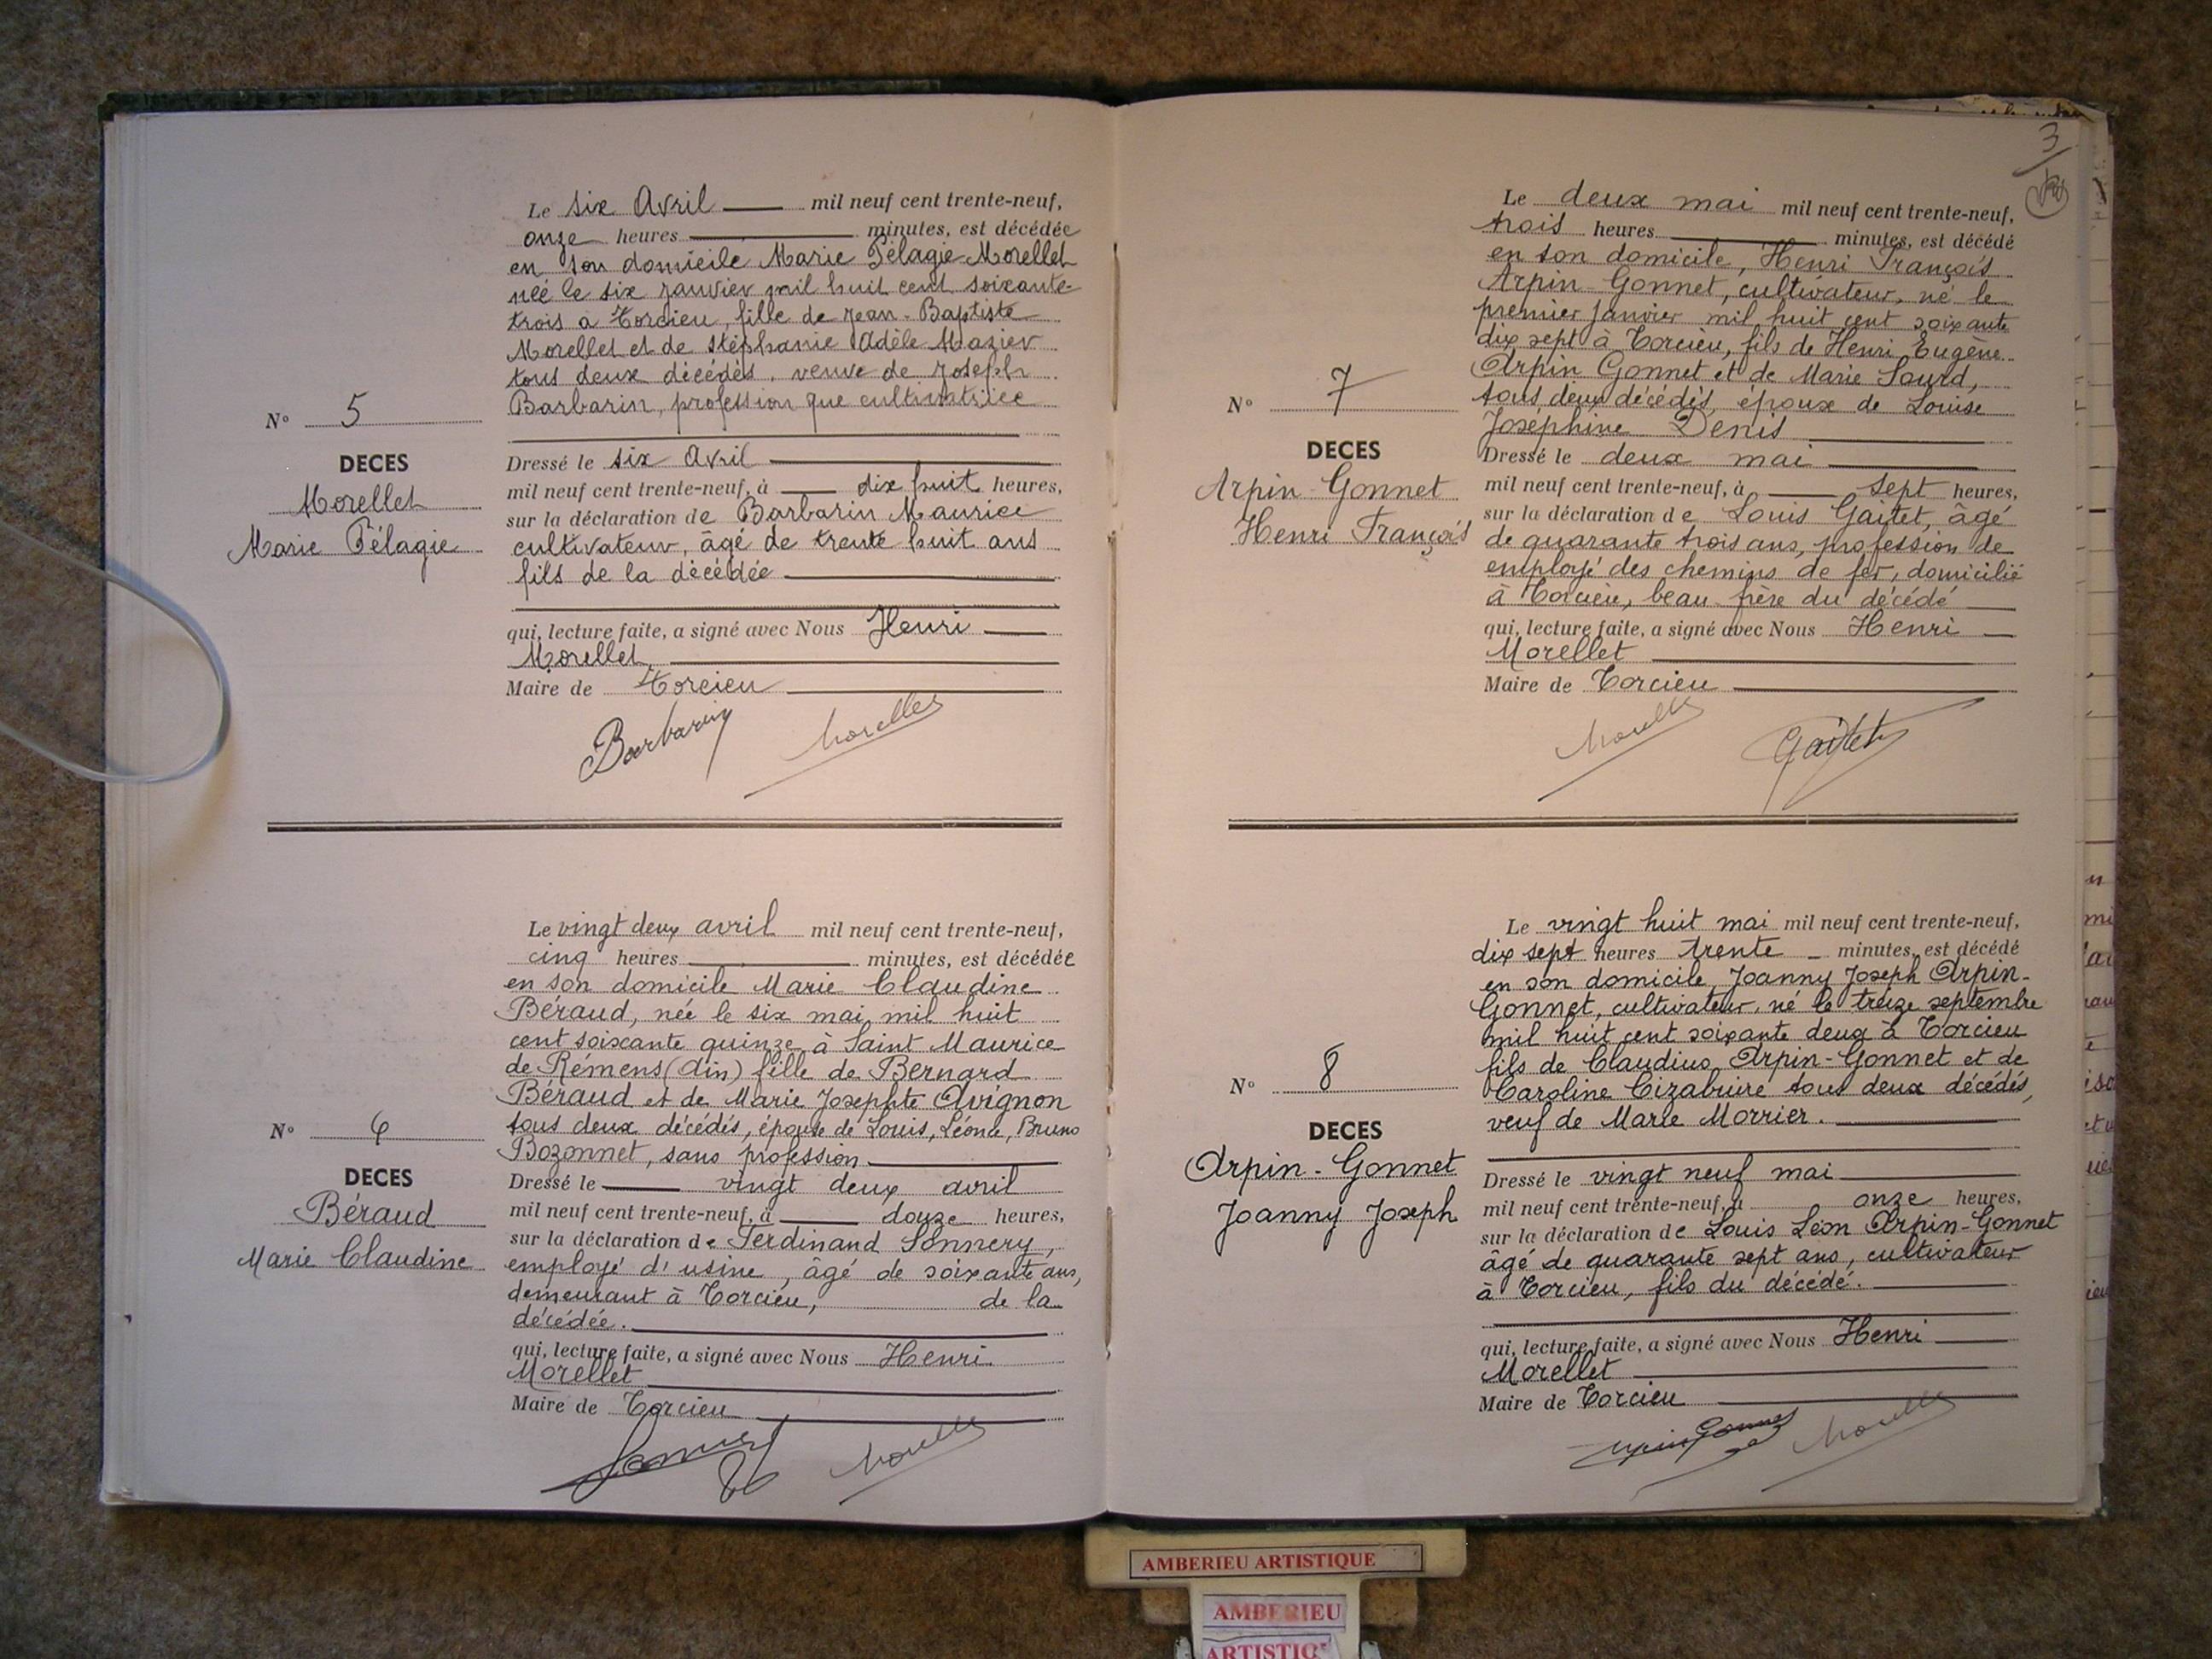 Le six Avril mil neuf cent trente-neuf,
onze heures minutes, est décédée
en son domicile Marie Pélagie Morellet
née le six janvier mil huit cent soixante-
trois à Torcieu, fille de Jean-Baptiste
Morellet et de Stéphanie Adèle Mazier
tous deux décédés, veuve de Joseph
Barbarin, profession que cultivatrice
N° 5
DECES
Morellet
Marie Pélagie
Dressé le six Avril
mil neuf cent trente-neuf, à dix huit heures,
sur la déclaration de Barbarin Maurice
cultivateur, âgé de trente huit ans
fils de la décédée
qui, lecture faite, a signé avec Nous Henri
Morellet
Maire de Torcieu
Barbarin Morellet
Le vingt deux avril mil neuf cent trente-neuf,
cinq heures minutes, est décédée
en son domicile Marie Claudine
Béraud, née le six mai mil huit
cent soixante quinze à Saint Maurice
de Rémens (Ain) fille de Bernard
Béraud et de Marie Josephte Avignon
tous deux décédés, épouse de Louis, Léonce, Bruno
Bozonnet, sans profession
N° 6
DECES
Béraud
Marie Claudine
Dressé le vingt deux avril
mil neuf cent trente-neuf, à douze heures,
sur la déclaration de Ferdinand Sonnery,
employé d'usine, âgé de soixante ans,
demeurant à Torcieu, de la
décédée.
qui, lecture faite, a signé avec Nous Henri
Morellet
Maire de Torcieu
Morellet
3
Le deux mai mil neuf cent trente-neuf,
trois heures minutes, est décédé
en son domicile, Henri François
Arpin-Gonnet, cultivateur, né le
premier janvier mil huit cent soixante
dix sept à Torcieu, fils de Henri Eugène
Arpin Gonnet et de Marie Sourd,
tous deux décédés, époux de Louise
Joséphine Denis
N° 7
DECES
Arpin-Gonnet
Henri François
Dressé le deux mai
mil neuf cent trente-neuf, à sept heures,
sur la déclaration de Louis Gaitet, âgé
de quarante trois ans, profession de
employé des chemins de fer, domicilié
à Torcieu, beau-frère du décédé
qui, lecture faite, a signé avec Nous Henri
Morellet
Maire de Torcieu
Morellet Gaitet
Le vingt huit mai mil neuf cent trente-neuf,
dix sept heures trente minutes, est décédé
en son domicile, Joanny Joseph Arpin-
Gonnet, cultivateur, né le treize septembre
mil huit cent soixante deux à Torcieu
fils de Claudius Arpin-Gonnet et de
Caroline tous deux décédés,
veuf de Marie Morrier.
N° 8
DECES
Arpin-Gonnet
Joanny Joseph
Dressé le vingt neuf mai
mil neuf cent trente-neuf, à onze heures,
sur la déclaration de Louis Léon Arpin-Gonnet
âgé de quarante sept ans, cultivateur
à Torcieu, fils du décédé.
qui, lecture faite, a signé avec Nous Henri
Morellet
Maire de Torcieu
Arpin Gonnet Morellet
AMBERIEU ARTISTIQUE
AMBERIEU
ARTISTIQ